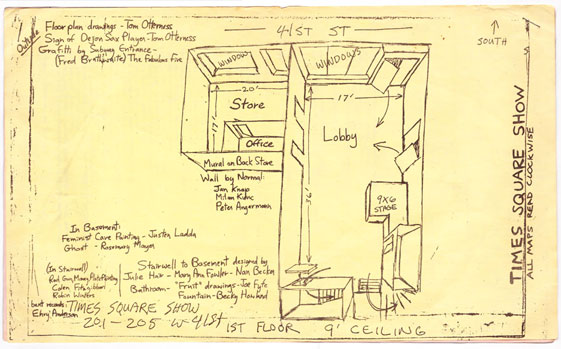 41ST ST
SOUTH
Outside
Floorplan drawings - Tom Otterness
Sign of Dejon Sax Player - Tom Otterness
Grafitti by Subway Entrance -
(Fred Brathwaite) The Fabulous Five
WINDOWS
WINDOWS
20'
17'
Store
Office
Mural on Back Store
Wall by Normal:
Jan Knap
Milan Kunc
Peter Angermann
17'
Lobby
36'
9X6
STAGE
TIMES SQUARE SHOW
ALL MAPS READ CLOCKWISE
In Basement:
Feminist Cave Painting - Justen Ladda
Ghost - Rosemary Mayer
(In Stairwell)
Red Gun, Money, Plate Painting
Colen Fitzgibbon
Robin Winters
Stairwell to Basement designed by
Julie Hair - Mary Ann Fowler - Nan Becker
Bathroom - "Fruit" drawings - Joe Fyfe
Fountain - Becky Howland
bent records:
Anderson
TIMES SQUARE SHOW
201-205 W 41ST
1ST FLOOR 9' CEILING